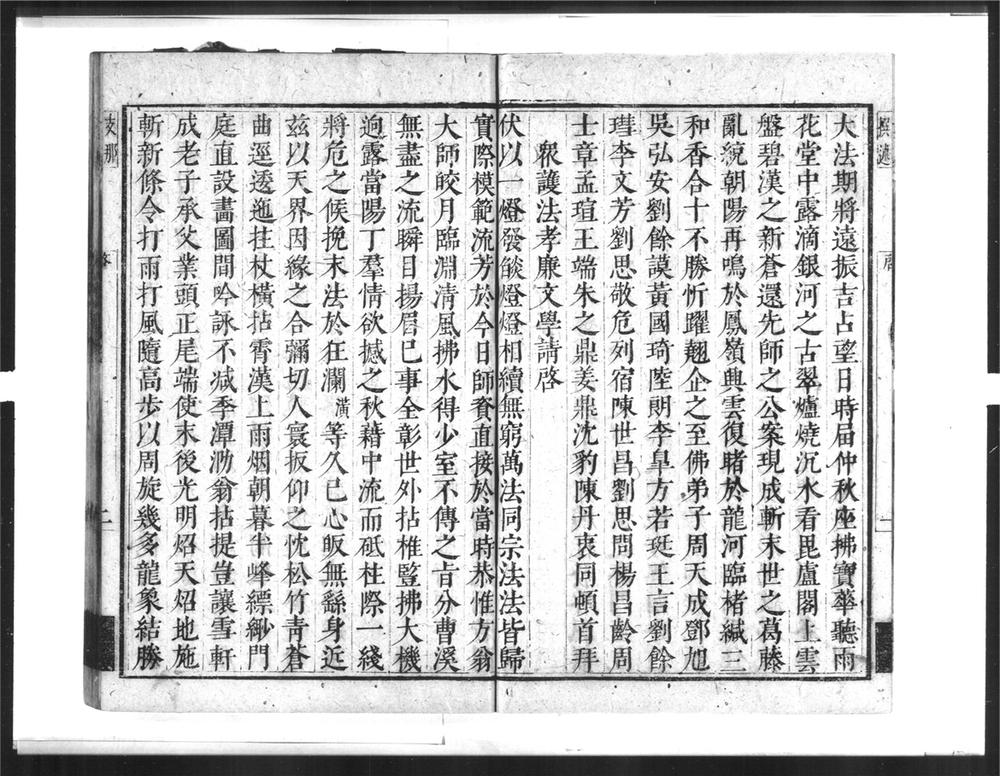 大法期將遠振吉占朢日時届仲秋座拂寶華聽雨
花堂中露滴銀河之古翠爐燒沉水看毘盧閣上雲
盤碧漢之新蒼還先師之公案現成斬末世之葛藤
亂統朝陽再鳴於鳳嶺興雲復睹於龍河臨楮緘三
和香合十不勝忻躍翹企之至佛弟子周天成鄧旭
吳弘安劉餘謨黃國琦陸朗李皐方若珽王言劉餘
琟李文芳劉思敬危列宿陳世昌劉思問楊昌齡周
士章孟瑄王端朱之鼎姜鼎沈豹陳丹衷同頓首拜
衆護法孝廉文學請啓
伏以一燈發燄燈燈相續無窮萬法同宗法法皆歸
實際模範流芳於今日師資直接於當時恭惟方翁
大師皎月臨淵清風拂水得少室不傳之旨分曹溪
無盡之流瞬目揚眉已事全彰世外拈椎豎拂大機
逈露當陽丁羣情欲撼之秋藉中流而砥柱際一綫
將危之候挽末法於狂瀾潢等久已心皈無繇身近
玆以天界因緣之合彌切人寰扳仰之忱松竹青蒼
曲逕透迤拄杖橫拈霄漢上雨烟朝暮半峰縹緲門
庭直設畫圖間吟詠不减季潭泐翁拈提豈讓雪軒
成老子承父業頭正尾端使末後光明炤天炤地施
斬新條令打雨打風隨高步以周旋幾多龍象結勝
支那
啓
二
啓
一